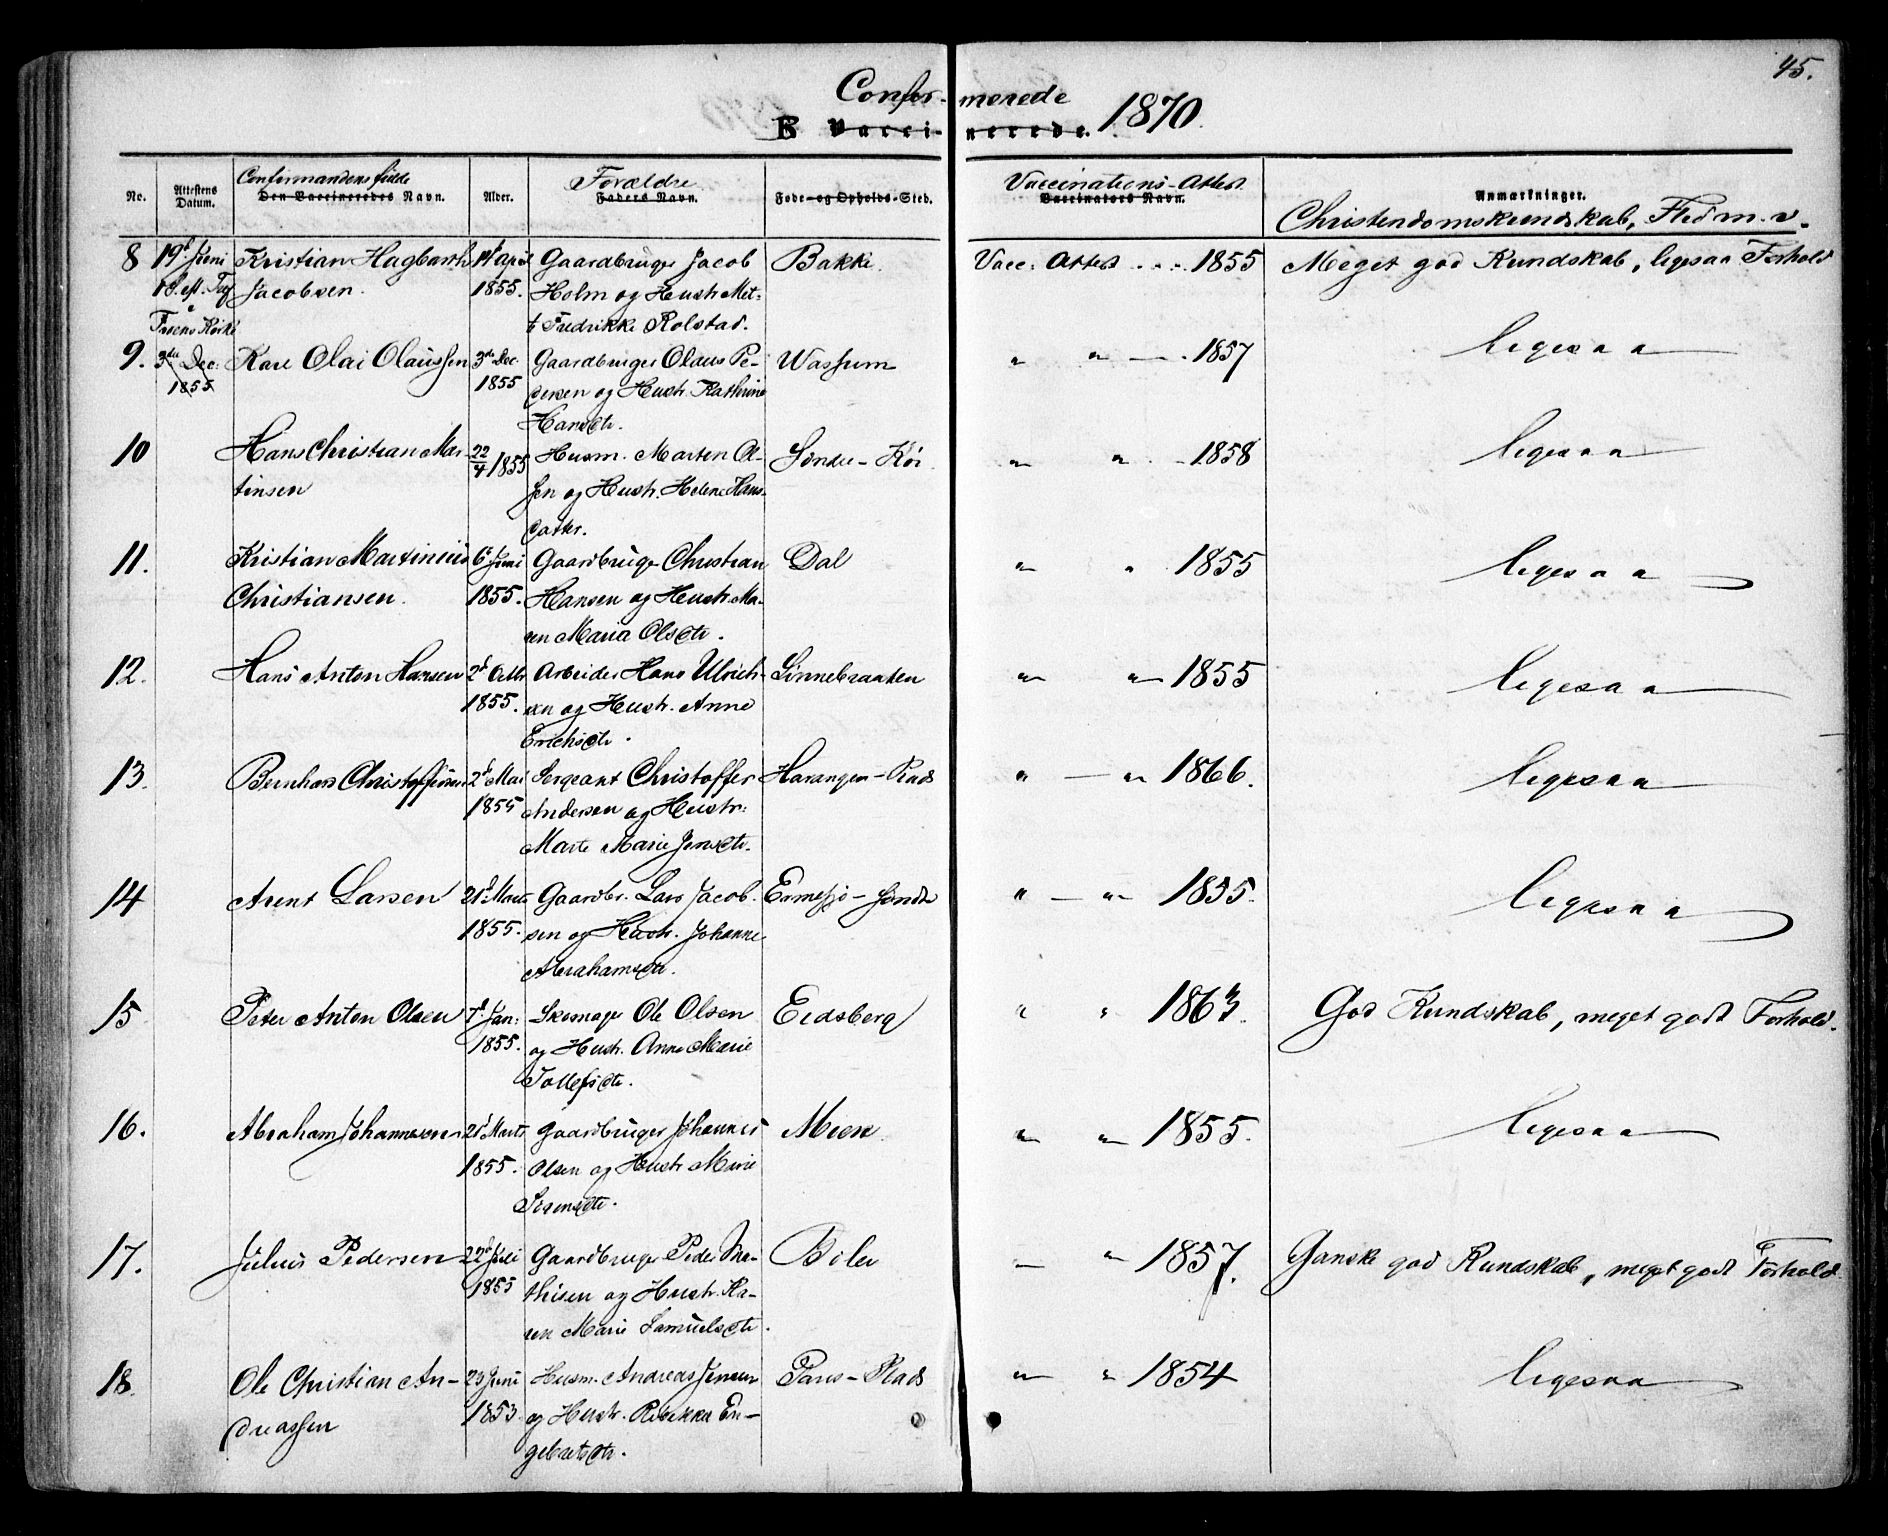 45.
Confir-merede
B Vacci-nerede. 1870.
No. Attestens Datum. Confirmandens fulde Den Vaccineredes Navn. Alder. Forældre Faders Navn. Føde- og Opholds-Sted. Vaccinations-Attest. Vaccinators Navn. Anmærkninger. Christendomskundskab, Flid m. v.
8 19d Juni Kristian Hagbarth April Gaardbruger Jacob Bakke. Vacc: Attest 1855 Meget god Kundskab, ligesaa Forhold
Jacobsen. 1855. Holm og Hustr. Met-
Kirke te Fredrikke Rolstad.
9. 3die Dec: Kare Olai Olaussen 3die Dec. Gaardbruger Olaus Pe- Wassum " " 1857 ligesaa
1855 1855 dersen og Hustr. Kathrine
Hansdtr.
10 Hans Christian Mar- 22/4 1855 Husm. Marten Ol- Søndre- " " 1858 ligesaa
tinsen sen og Hustr. Helene Hans-
datter.
11. Kristian Martinius 6t Juni Gaardbruger Christian Dal " " 1855 ligesaa
Christiansen. 1855. Hansen og Hustr. Ma-
ren Maria Olsdtr.
12. Hans Anton Hansen 2d Octbr Arbeider Hans Ulrich- Linnebraaten " " 1855 ligesaa
1855. sen og Hustr. Anne
Erichsdtr.
13. Bernhard Christoffersen 2d Mai Sergeant Christoffer Harangen-Plads " " 1866. ligesaa
1855 Andersen og Hustr:
Marte Marie Jensdtr.
14 Arent Larsen 21d Marts Gaardbr. Lars Jacob- " " 1855. ligesaa
1855. sen og Hustr. Johanne
Abrahamsdtr.
15 Peter Anton Olsen 7d Jan: Skomager Ole Olsen Eidsberg " " 1863. God Kundskab, meget godt Forhold.
1855. og Hustr. Anne Marie
Tollefsdtr.
16. Abraham Johannesen 21 Marts Gaardbruger Johannes Moen " " 1855. ligesaa
1855. Olsen og Hustr Marie
Svensdtr.
17. Julius Pedersen 22d Juli Gaardbruger Peder Ma- Bøler " 1857. Ganske god Kundskab, meget godt Forhold.
1855 thisen og Hustr. Ka-
ren Marie Samuelsdtr.
18. Ole Christian An- 29 Juni Husm. Andreas Jensen Paris-Plads " " 1854 ligesaa
dreassen 1853. og Hustr. Rebekka En-
gebretsdtr.